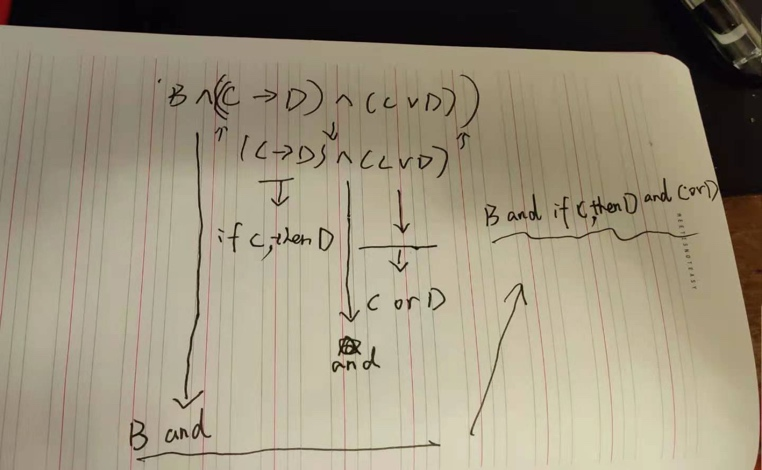 B ∧ ((C → D) ∧ (C ∨ D))
(C → D) ∧ (C ∨ D)
if C, then D
C or D
and
B and
B and if C, then D and C or D